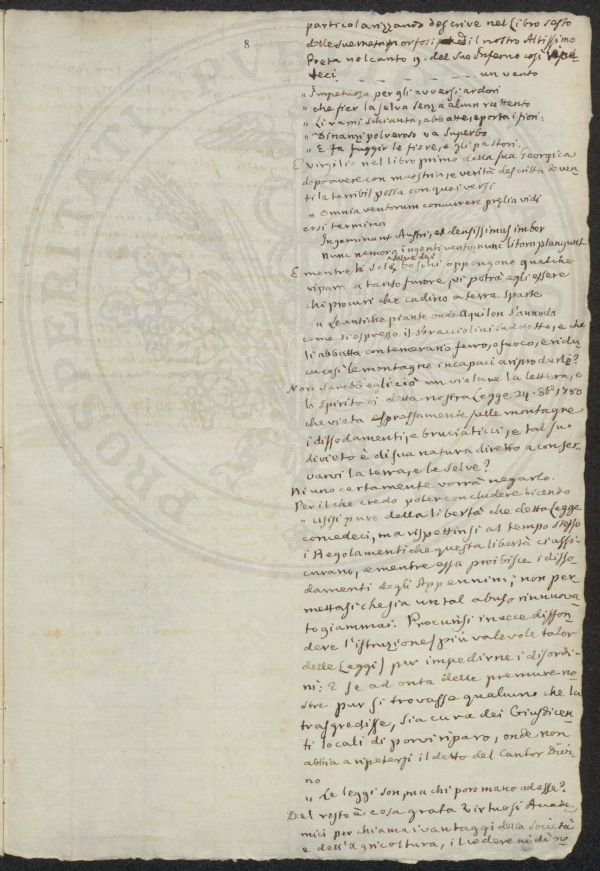 8
particolarizzando descrive nel Libro sesto
delle sue metamorfosi ed il nostro Altissimo
Poeta nel canto 9. del suo Inferno così
deci - - - - - - - - - un vento
„ Impetuoso per gli avversi ardori
„ che fier la selva senza alcun rattento
„ Li rami schianta, abbatte, e porta i fiori:
„ Dinanzi polveroso va superbo
„ E fa fuggir le fiere, e gli pastori.
E virgilio nel libro primo della sua Georgica
dopo avere con maestria, e verità descritta de ven
ti la terribil possa con quei versi
„ Omnia ventorum concurrere prælia vidi
così termina
Ingeminant Austri, et densissimus imber
Nunc nemora ingenti vento, nunc litora plangunt
E mentre le sole selve dei boschi oppongono qualche
riparo a tanto furore, vi potrà egli essere
chi procuri che cadino a terra sparte
„ Le antiche piante onde Aquilon s'annoda
come si espresse il Bracciolini sudetto, e che
li abbatta con temerario ferro, o fuoco, e ridu
ca così le montagne incapaci a riprodurle?
Non sarebb' egli ciò un violare la lettera, e
lo spirito di detta nostra Legge 24. 8bre 1780
che vieta espressamente sulle montagne
i dissodamenti, e bruciaticci, e tal suo
divieto è di sua natura diretto a conser
varvi la terra, e le selve?
Niuno certamente vorrà negarlo.
Per il che credo poter concludere dicendo
„ usisi pure della libertà che detta Legge
concedeci, ma rispettinsi al tempo stesso
i Regolamenti che questa libertà ci assi
curano, e mentre essa proibisce i disso
damenti degli Appennini; non per
mettasi che sia un tal abuso rinnuova
to giammai. Procurisi invece diffon
dere l'istruzione (più valevole talor
delle Leggi) per impedirne i disordi
ni: E se ad onta delle premure no
stre pur si trovasse qualcuno che la
trasgredisse, sia cura dei Giusdicen
ti locali di porvi riparo, onde non
abbia a ripetersi il detto del Cantor Divi
no
„ Le leggi son, ma chi pon mano ad esse?
Del resto è cosa grata Virtuosi Accade
mici per chi ama i vantaggi della società
e dell'Agricoltura, il vedere ai dì no